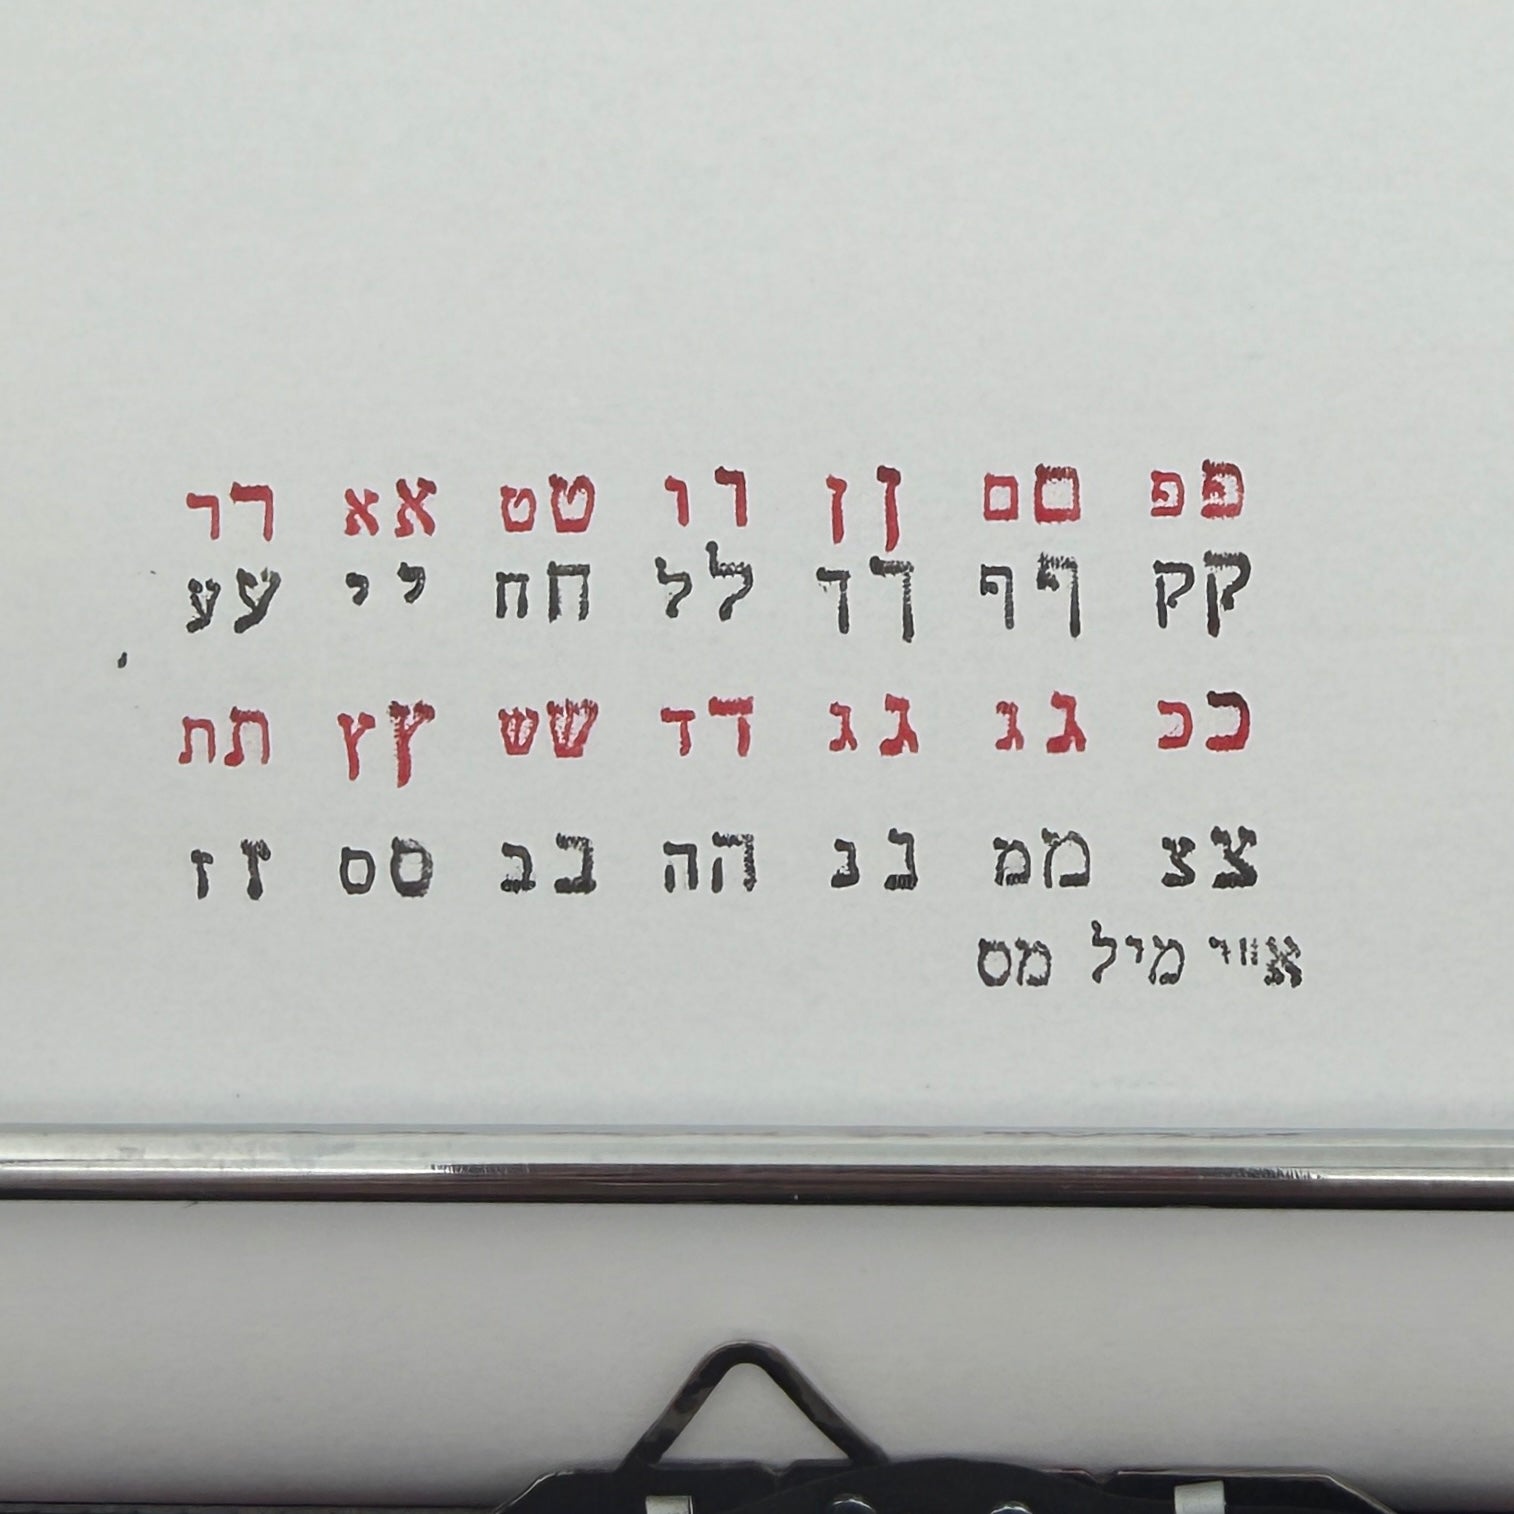 פפ םם ןן וו טט אא רר
קק ףף ךך לל חח יי עע
ככ גג גג דד שש ץץ תת
צצ ממ ננ הה בב סס זז
א"י מיל מס